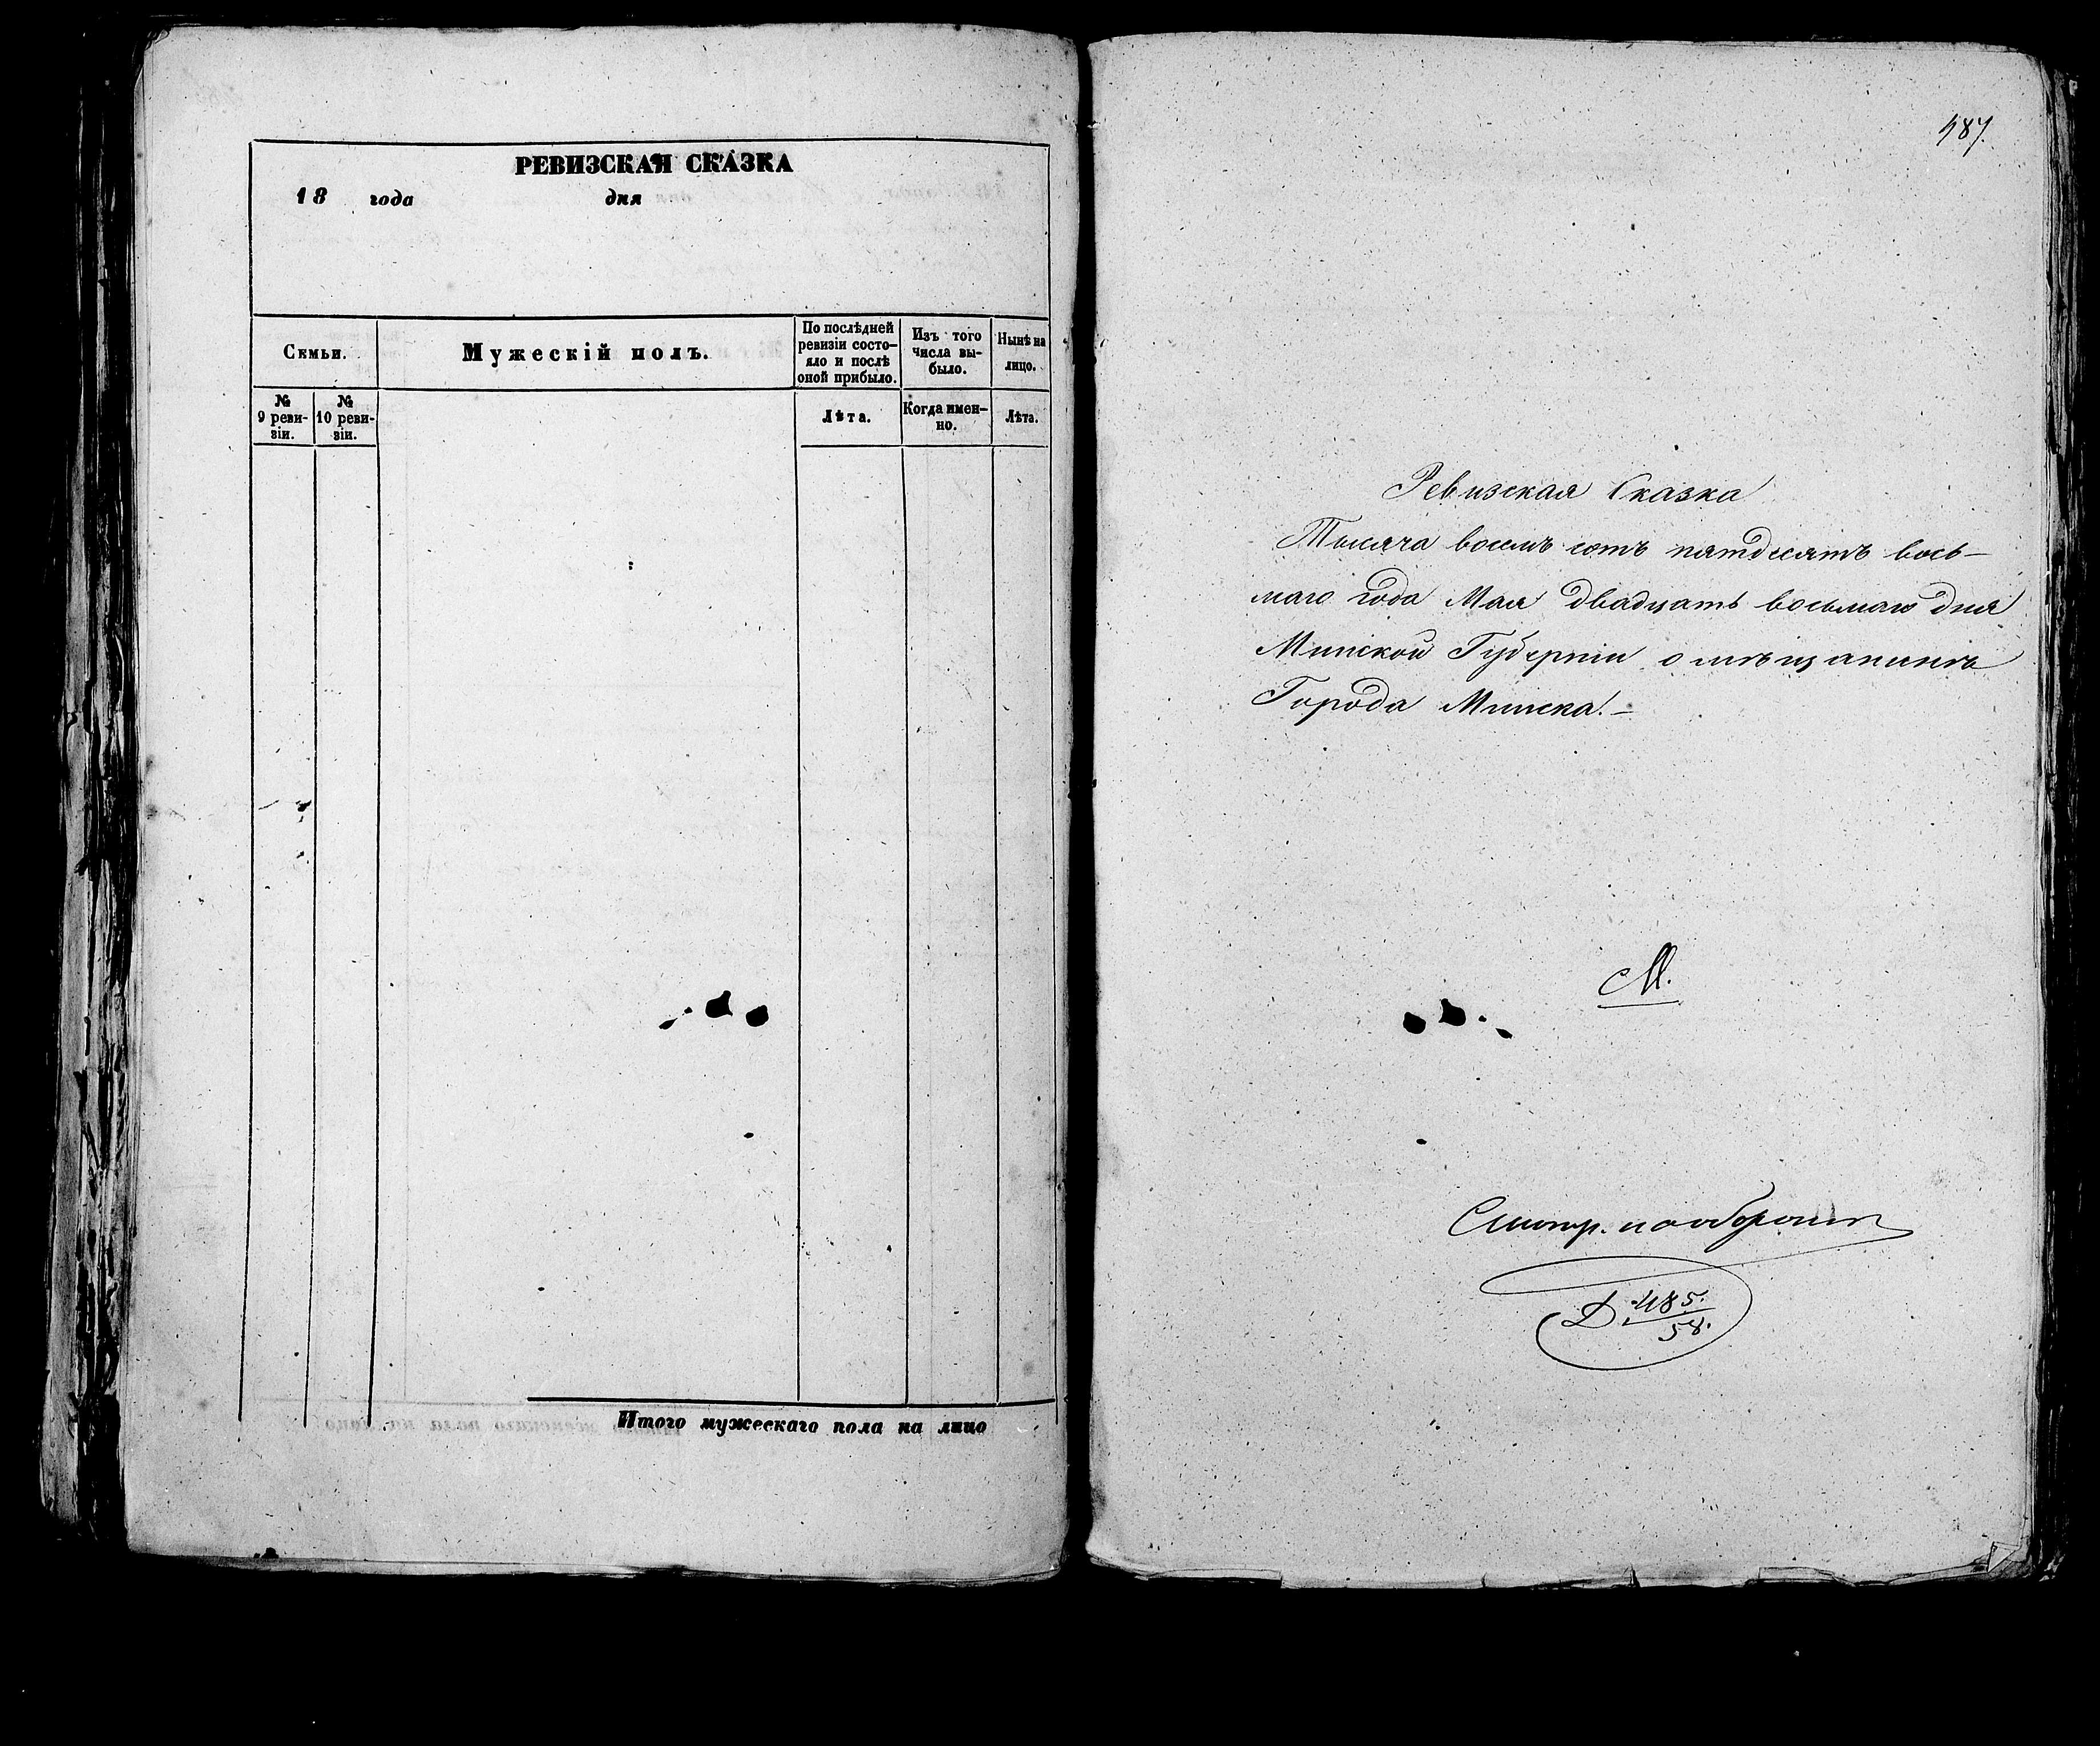 РЕВИЗСКАЯ СКАЗКА
18 года дня
Семьи.
Мужескій полъ.
По послѣдней
ревизіи состо-
яло и послѣ
оной прибыло.
Изъ того
числа вы-
было.
Нынѣ на
лицо.
№
9 реви-
зіи.
№
10 реви-
зіи.
Лѣта.
Когда имен-
но.
Лѣта.
Итого мужескаго пола на лицо
487.
Ревизская Сказка
Тысяча восемь сотъ пятдесятъ вось-
маго года Мая двадцать восьмаго дня
Минской Губерніи о мѣщанинѣ
Города Минска. –
М.
Смотр. на оборотѣ
D. 485.
58.